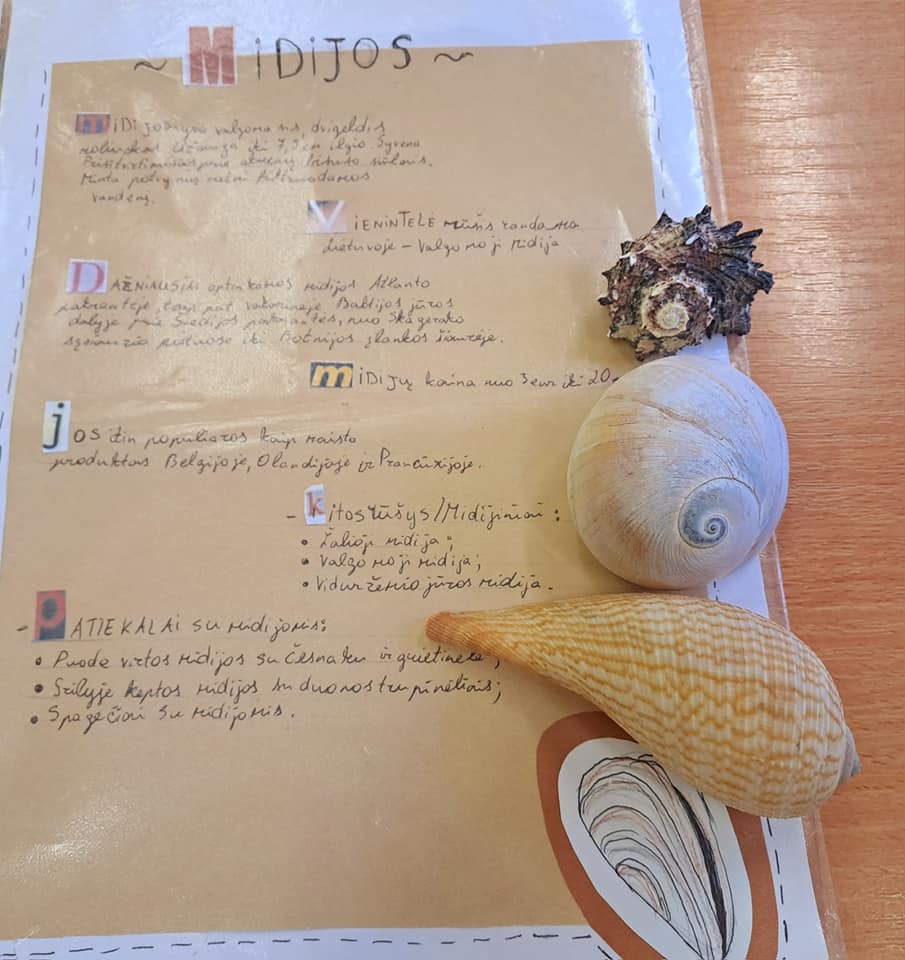 ~ MIDIJOS ~
MIDIJOS yra valgomasis, dvigeldis
moliuskas užauga iki 7,5 cm ilgio. Gyvena
Prisitvirtinusios prie akmenų
Minta
vandenį.
VIENINTELĖ mūsis randama
Lietuvoje – Valgomoji Midija
DAŽNIAUSIAI aptinkamos midijos Atlanto
pakrantėje, taip pat vakarinėje Baltijos jūros
dalyje prie Švedijos pakrantės, nuo Skagerako
sąsiaurio pietuose iki Botnijos įlankos šiaurėje.
MIDIJŲ kaina nuo 3 eur iki 20
jos itin populiarios kaip maisto
produktas Belgijoje, Olandijoje ir Prancūzijoje.
- kitos rūšys/Midijiniai:
• Žalioji midija;
• Valgomoji midija;
• Viduržemio jūros midija.
- PATIEKALAI su midijomis:
• Puode virtos midijos su česnaku ir grietinėle;
• Grilyje keptos midijos su duonos trupinėliais;
• Spagečiai su midijomis.